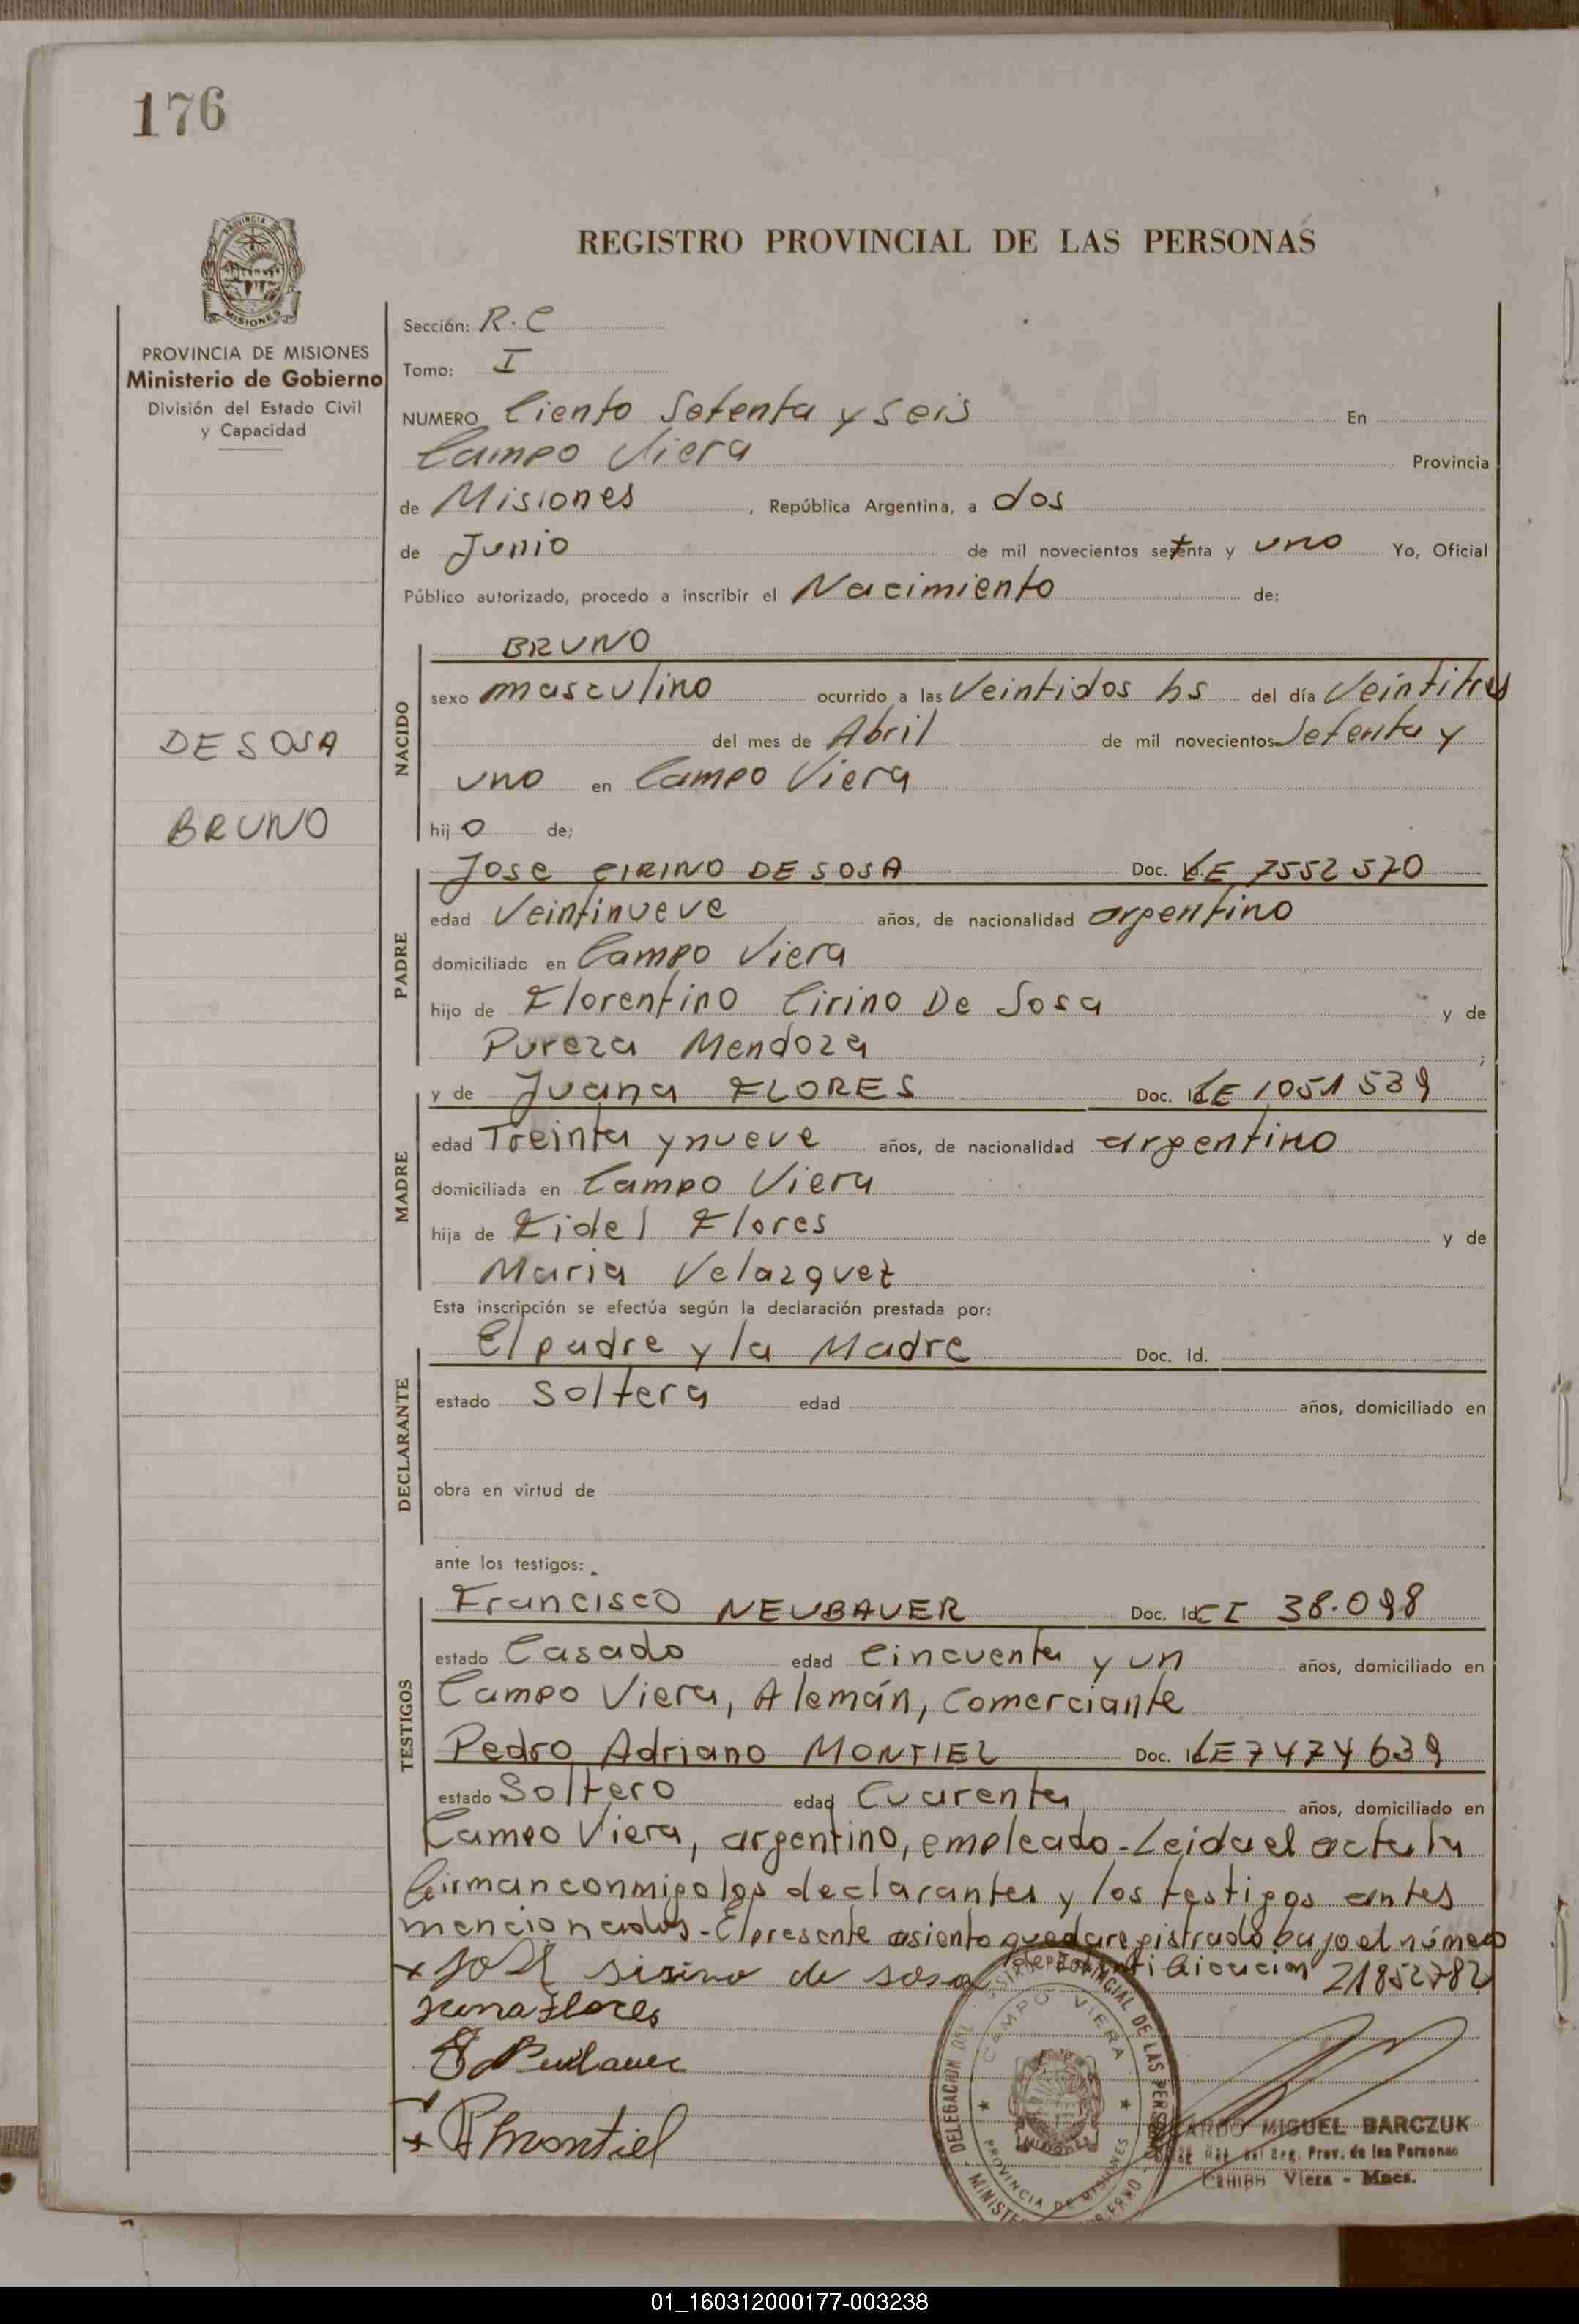 176
REGISTRO PROVINCIAL DE LAS PERSONAS
MISIONES
PROVINCIA DE MISIONES
Ministerio de Gobierno
División del Estado Civil
y Capacidad
DE SOSA
BRUNO
Sección: R.C
Tomo: I
NUMERO Ciento Setenta y seis En
Campo Viera Provincia
de Misiones, República Argentina, a dos
de Junio de mil novecientos setenta y uno Yo, Oficial
Público autorizado, procedo a inscribir el Nacimiento de:
NACIDO
BRUNO
sexo masculino ocurrido a las Veintidos hs del día Veintitres
del mes de Abril de mil novecientos Setenta y
uno en Campo Viera
hijo de;
PADRE
Jose CIRINO DE SOSA Doc. LE 7552570
edad Veintinueve años, de nacionalidad argentino
domiciliado en Campo Viera
hijo de Florentino Cirino De Sosa y de
Pureza Mendoza ;
MADRE
y de Juana FLORES Doc. LE 1051539
edad Treinta y nueve años, de nacionalidad argentino
domiciliada en Campo Viera
hija de Fidel Flores y de
Maria Velazquez
Esta inscripción se efectúa según la declaración prestada por:
DECLARANTE
El padre y la Madre Doc. Id.
estado Soltera edad años, domiciliado en
obra en virtud de
ante los testigos:
TESTIGOS
Francisco NEUBAUER Doc. Id CI 38.098
estado Casado edad Cincuenta y un años, domiciliado en
Campo Viera, Alemán, Comerciante
Pedro Adriano MONTIEL Doc. LE 7474639
estado Soltero edad Cuarenta años, domiciliado en
Campo Viera, argentino, empleado - Leida el acta la
firman conmigo los declarantes y los testigos antes
mencionados - El presente asiento queda registrado bajo el número
de identificación 21852782
José sirino de sosa
Juana Flores
PMontiel
DELEGACION DEL REGISTRO PROVINCIAL DE LAS PERSONAS
CAMPO VIERA
PROVINCIA DE MISIONES
MIGUEL BARCZUK
Reg. Prov. de las Personas
Campo Viera - Mnes.
01_160312000177-003238